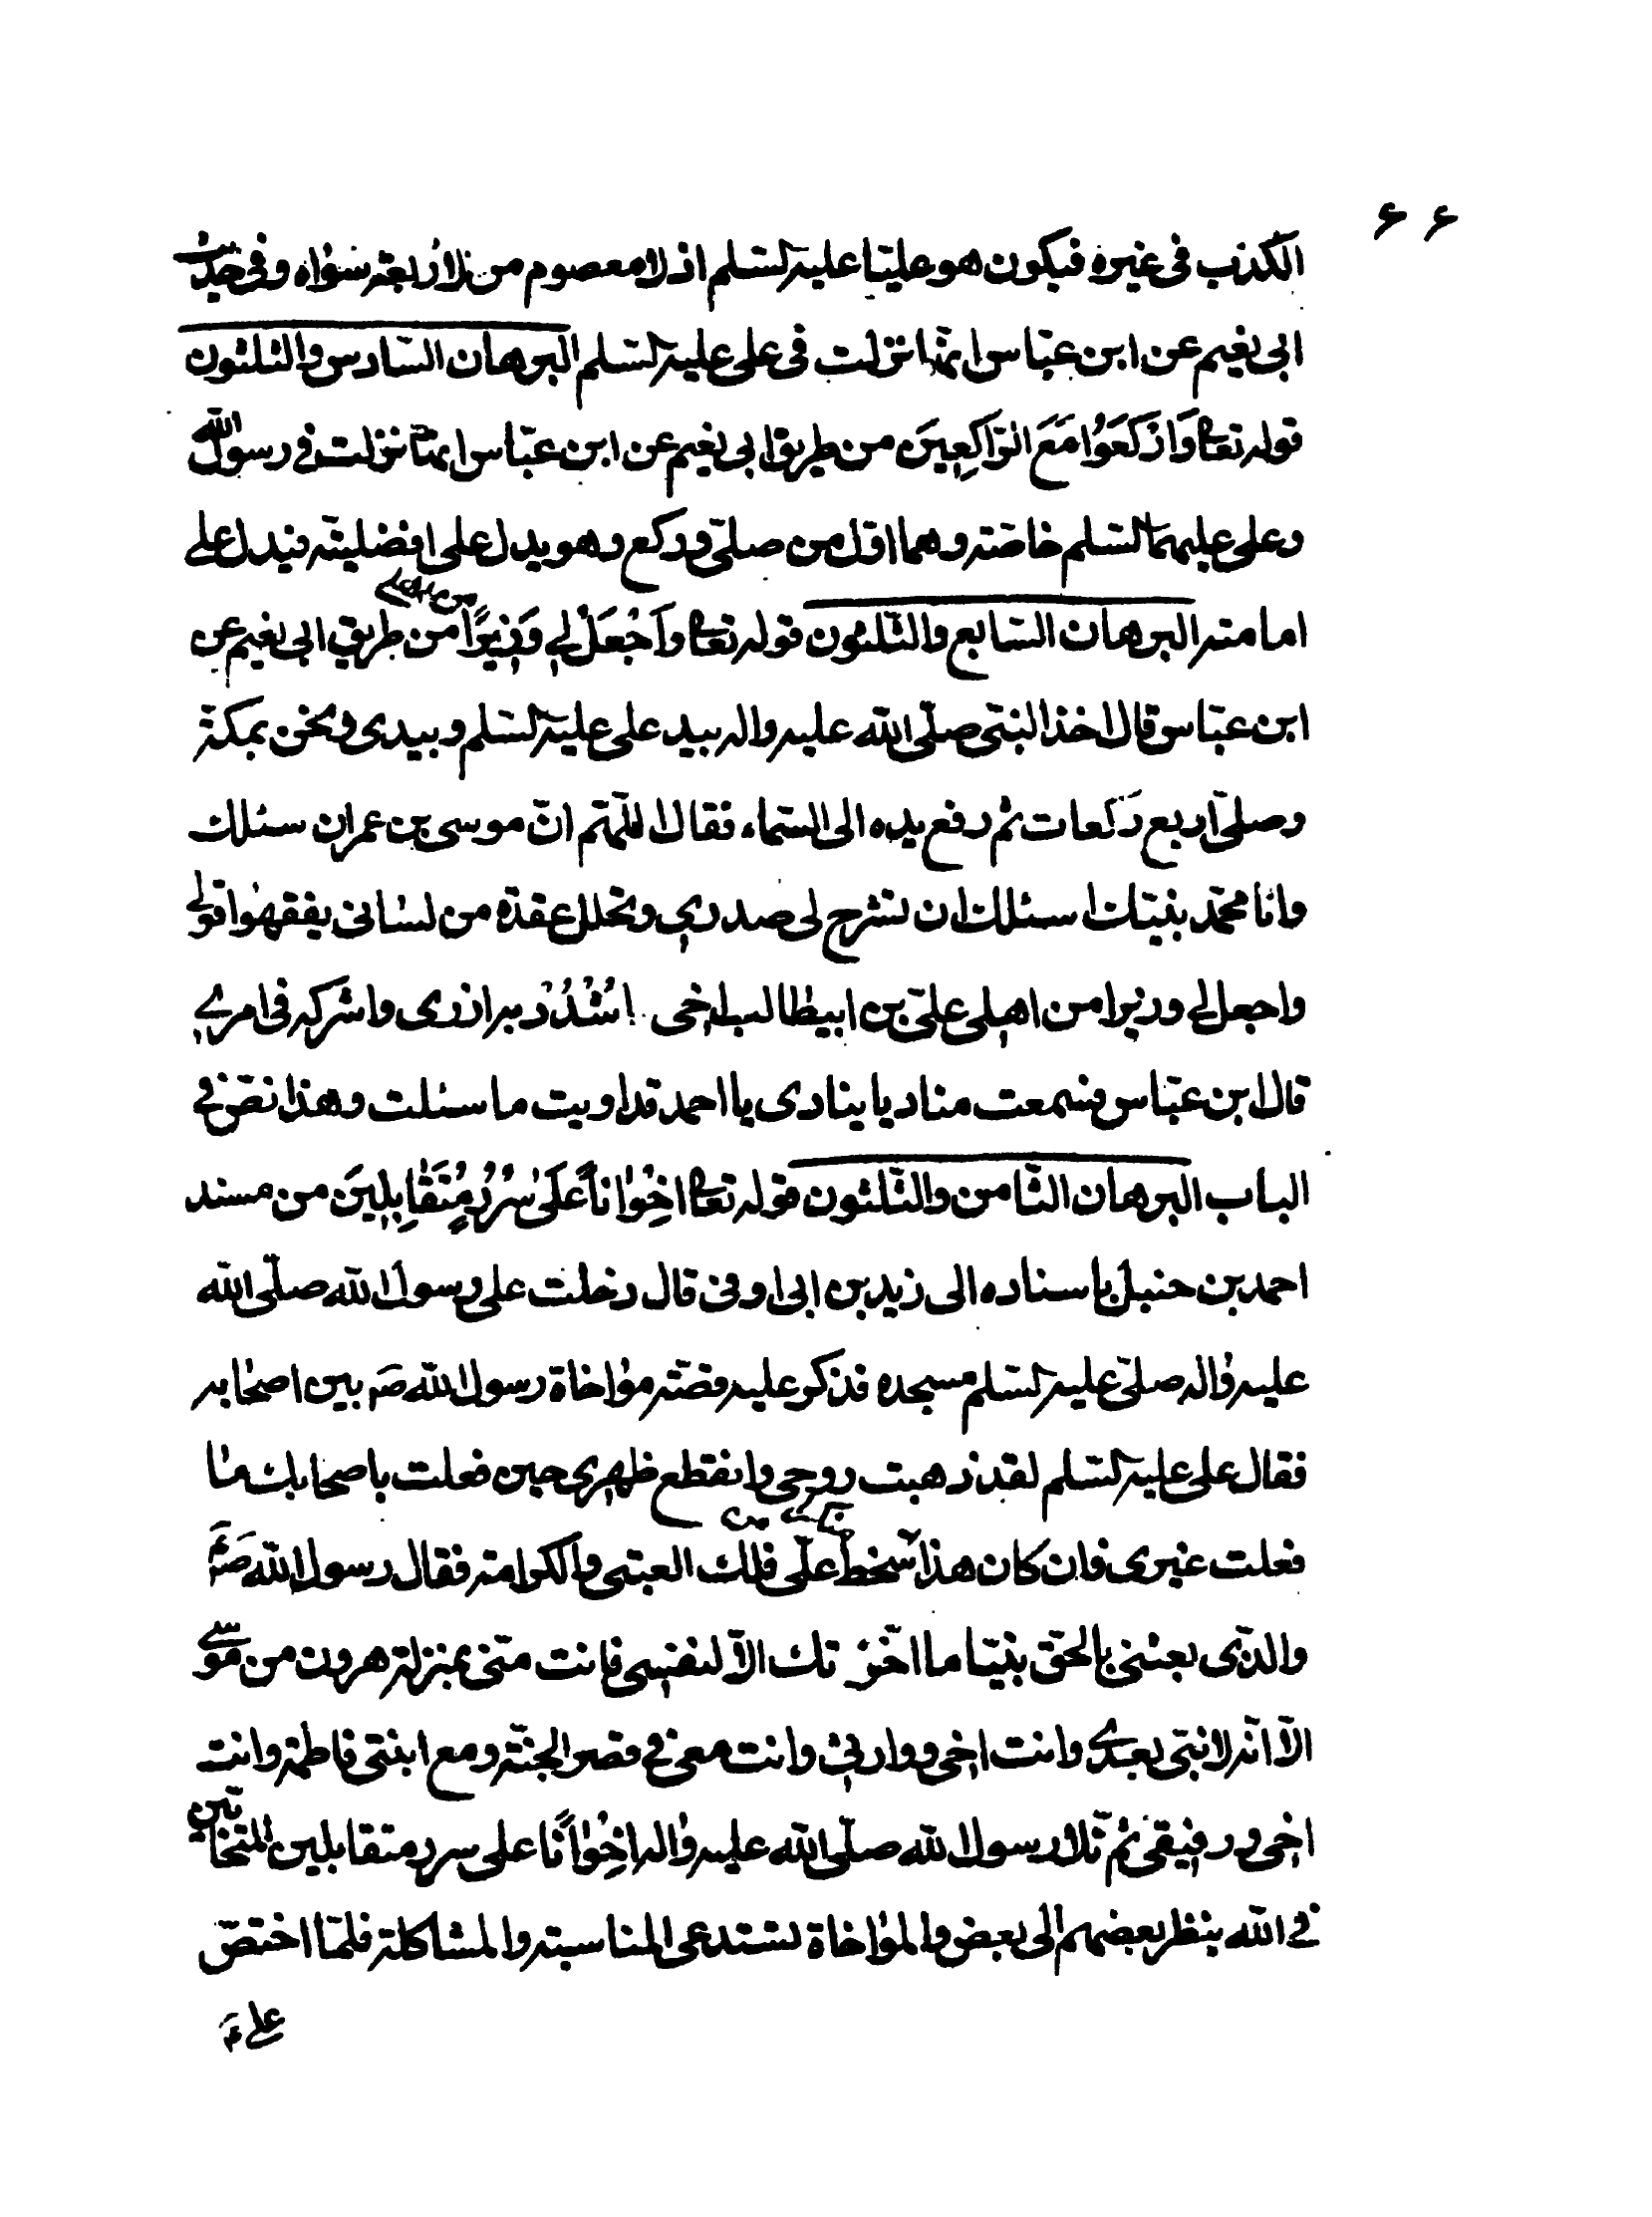 ۶۶
الكذب فى غيره فيكون هو عليّا عليه السّلم اذ لا معصوم من الاربعة سواه و فى حديث
ابى نعيم عن ابن عبّاس انّها نزلت فى على عليه السّلم البرهان السّادس والثلثون
قوله تعالى وَارْكَعُوا مَعَ الرّاكِعِينَ من طريق ابى نعيم عن ابن عبّاس انّها نزلت فى رسول اللّه
وعلى عليهما السّلم خاصّة وهما اوّل من صلّى وركع وهو يدل على افضليّته فيدل على
امامته البرهان السّابع والثّلثون قوله تعالى وَاجْعَلْ لِى وَزِيرًا من اهلى من طريق ابى نعيم عن
ابن عبّاس قال اخذ النبّى صلّى اللّه عليه واله بيد على عليه السّلم وبيدى ونحن بمكّة
وصلّى اربع ركعات ثم رفع يده الى السّماء فقال اللّهمّ انّ موسى بن عمران سئلك
وانا محمّد نبيّك اسئلك ان تشرح لى صدرى وتحلل عقدة من لسانى يفقهوا قولى
واجعل لى وزيرا من اهلى علىّ بن ابيطالب اخى اُشْدُدْ به ازرى واشركه فى امرى
قال ابن عبّاس فسمعت مناديا ينادى يا احمد قد اوتيت ما سئلت وهذا نصّ فى
الباب البرهان الثّامن والثّلثون قوله تعالى اخْوٰاناً عَلىٰ سُرُرٍ مُتَقٰابِلِينَ من مسند
احمد بن حنبل باسناده الى زيد بن ابى اوفى قال دخلت على رسول اللّه صلّى اللّه
عليه واله صلّى عليه السّلم مسجده فذكر عليه قصّة مؤاخاة رسول اللّه صَ بين اصحابه
فقال على عليه السّلم لقد ذهبت روحى وانقطع ظهرى حين فعلت باصحابك ما
فعلت غيرى فان كان هذا من سخط علىّ فلك العتبى والكرامة فقال رسول اللّه صَ
والذّى بعثنى بالحقّ نبيّا ما اخّرتك الاّ لنفسى فانت منّى بمنزلة هرون من موسى
الاّ انّه لا نبّى بعدى وانت اخى ووارثى وانت معى فى قصر الجنّة ومع ابنتى فاطمة وانت
اخى ورفيقى ثم تلا رسول اللّه صلّى اللّه عليه واله اخْوٰانًا على سرر متقابلين المتحابّين
فى اللّه ينظر بعضهم الى بعض والمؤاخاة تستدعى المناسبة والمشاكلة فلمّا اختصّ
علىّ ع